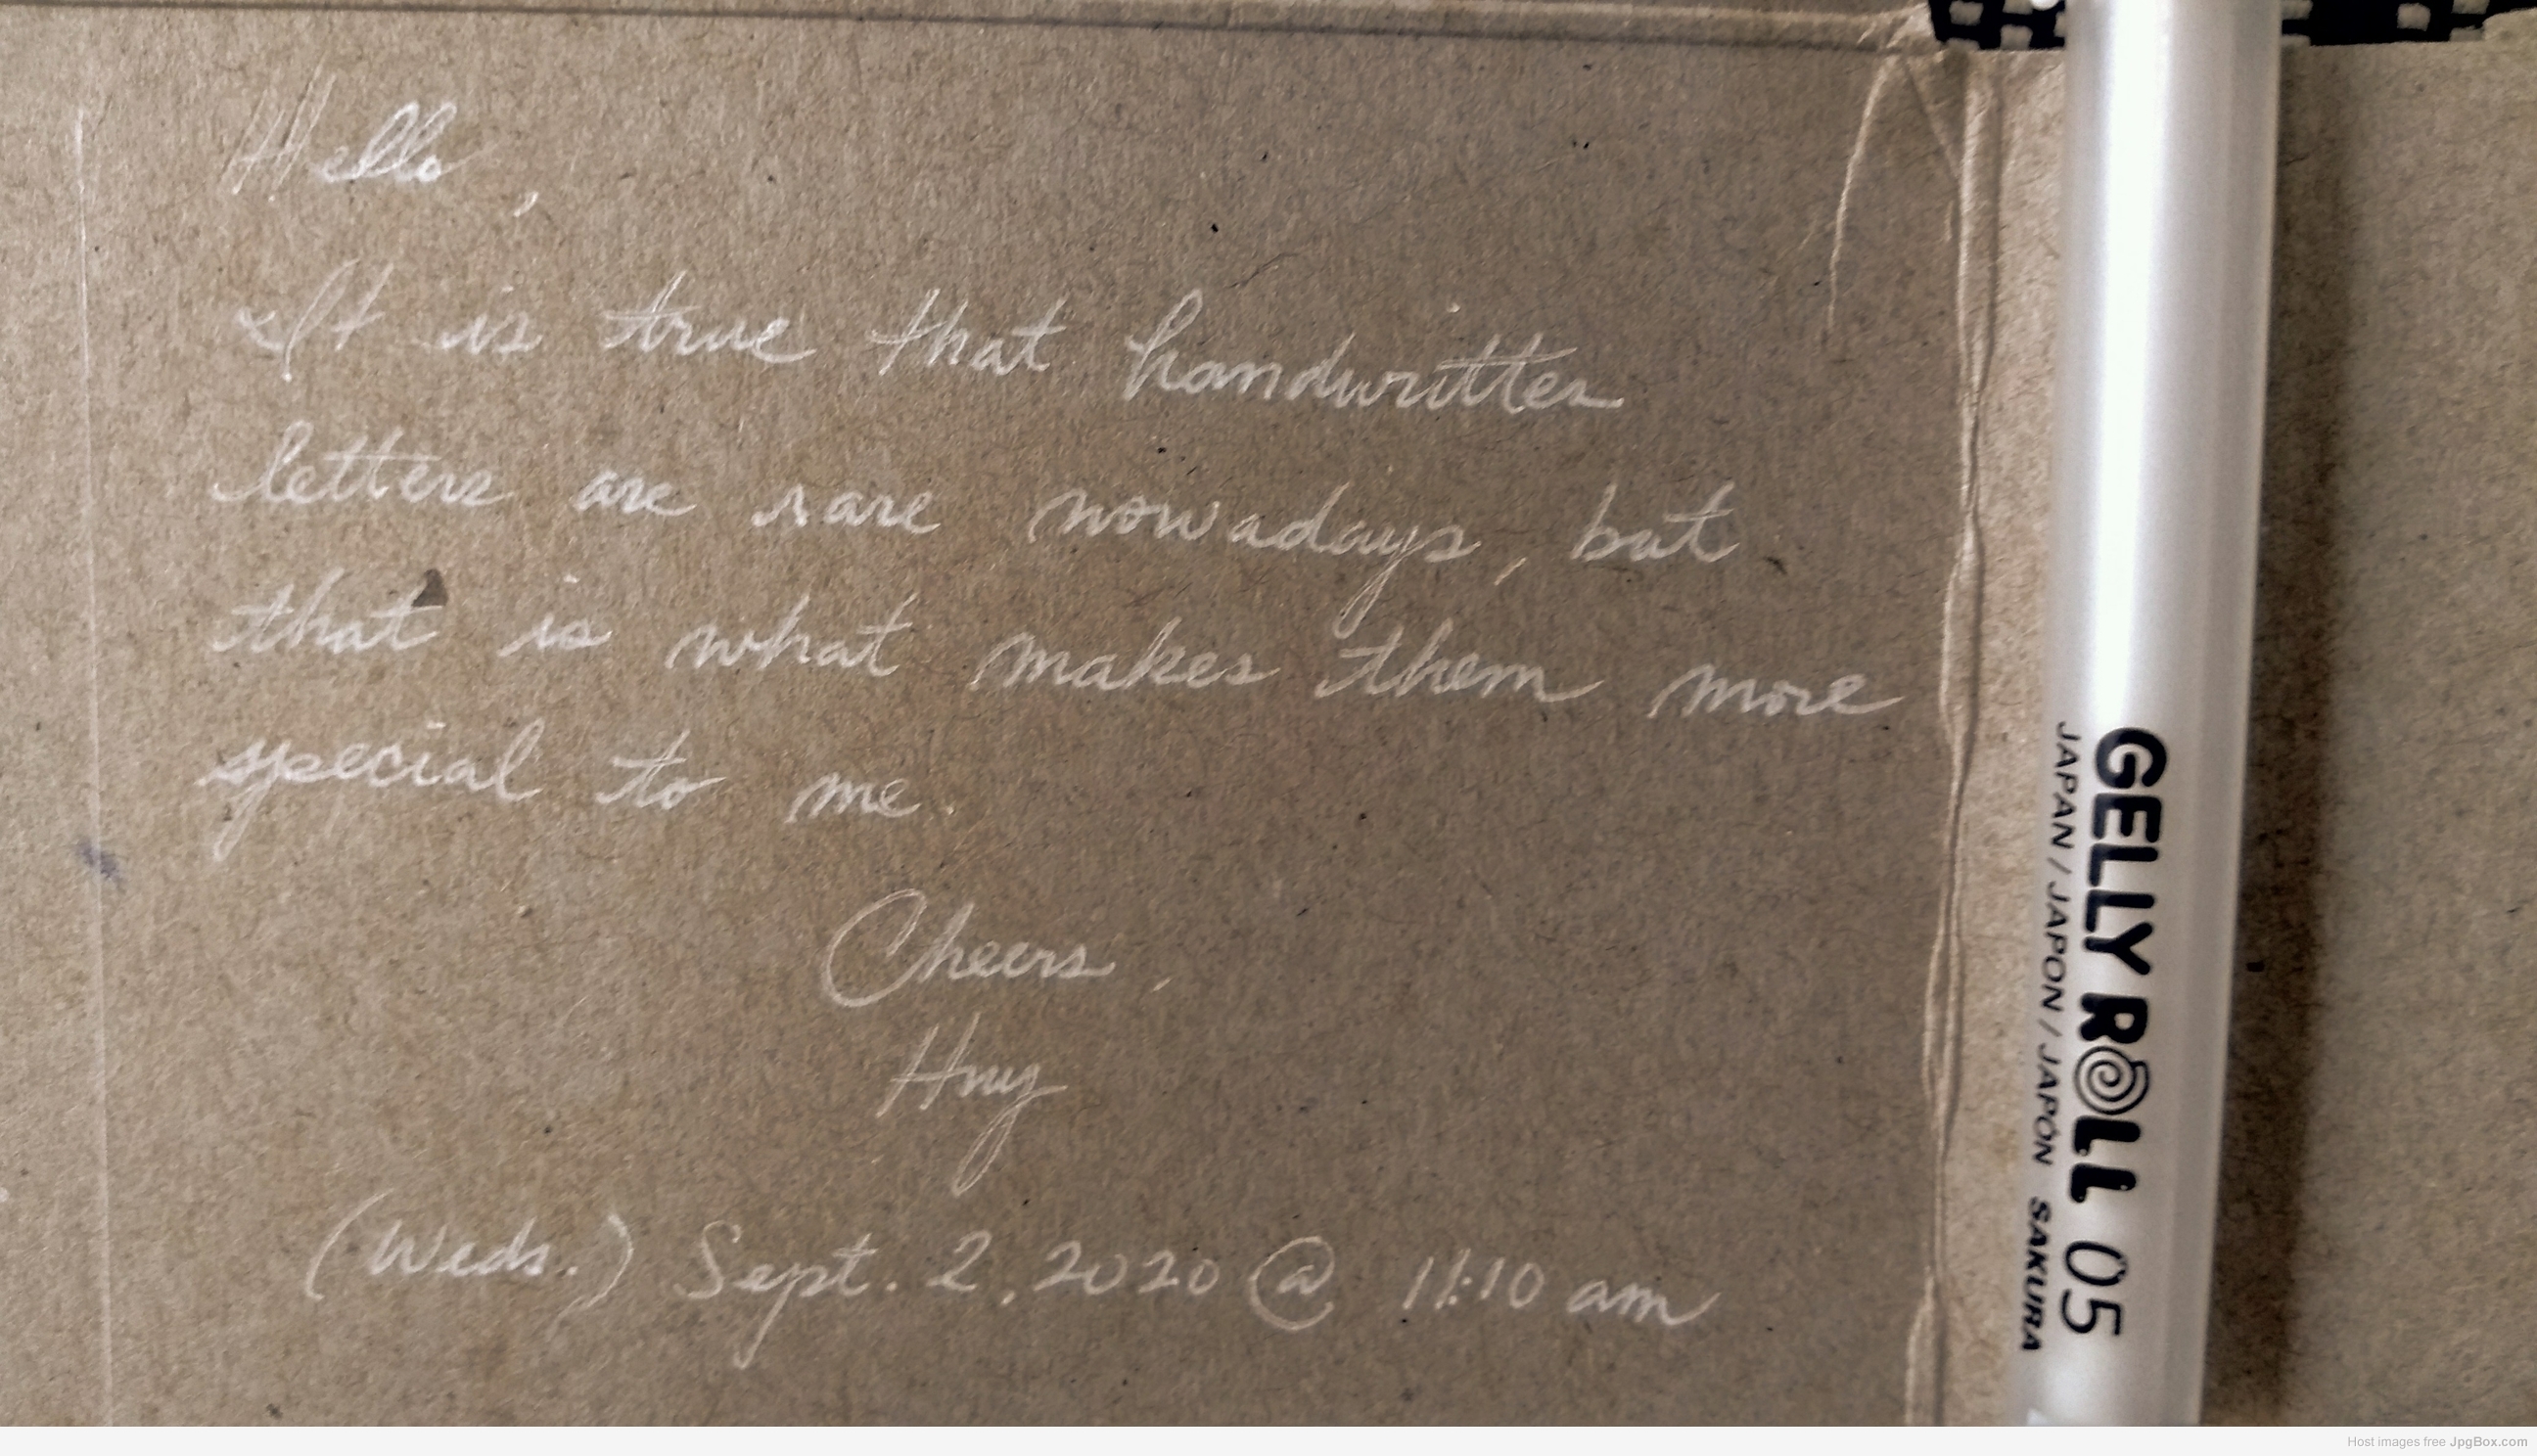 Hello,
It is true that handwritten
letters are rare nowadays, but
that is what makes them more
special to me.
Cheers,
Huy
(Weds.) Sept. 2, 2020 @ 11:10 am
GELLY ROLL 05
JAPAN / JAPON / JAPÓN SAKURA
Host images free JpgBox.com